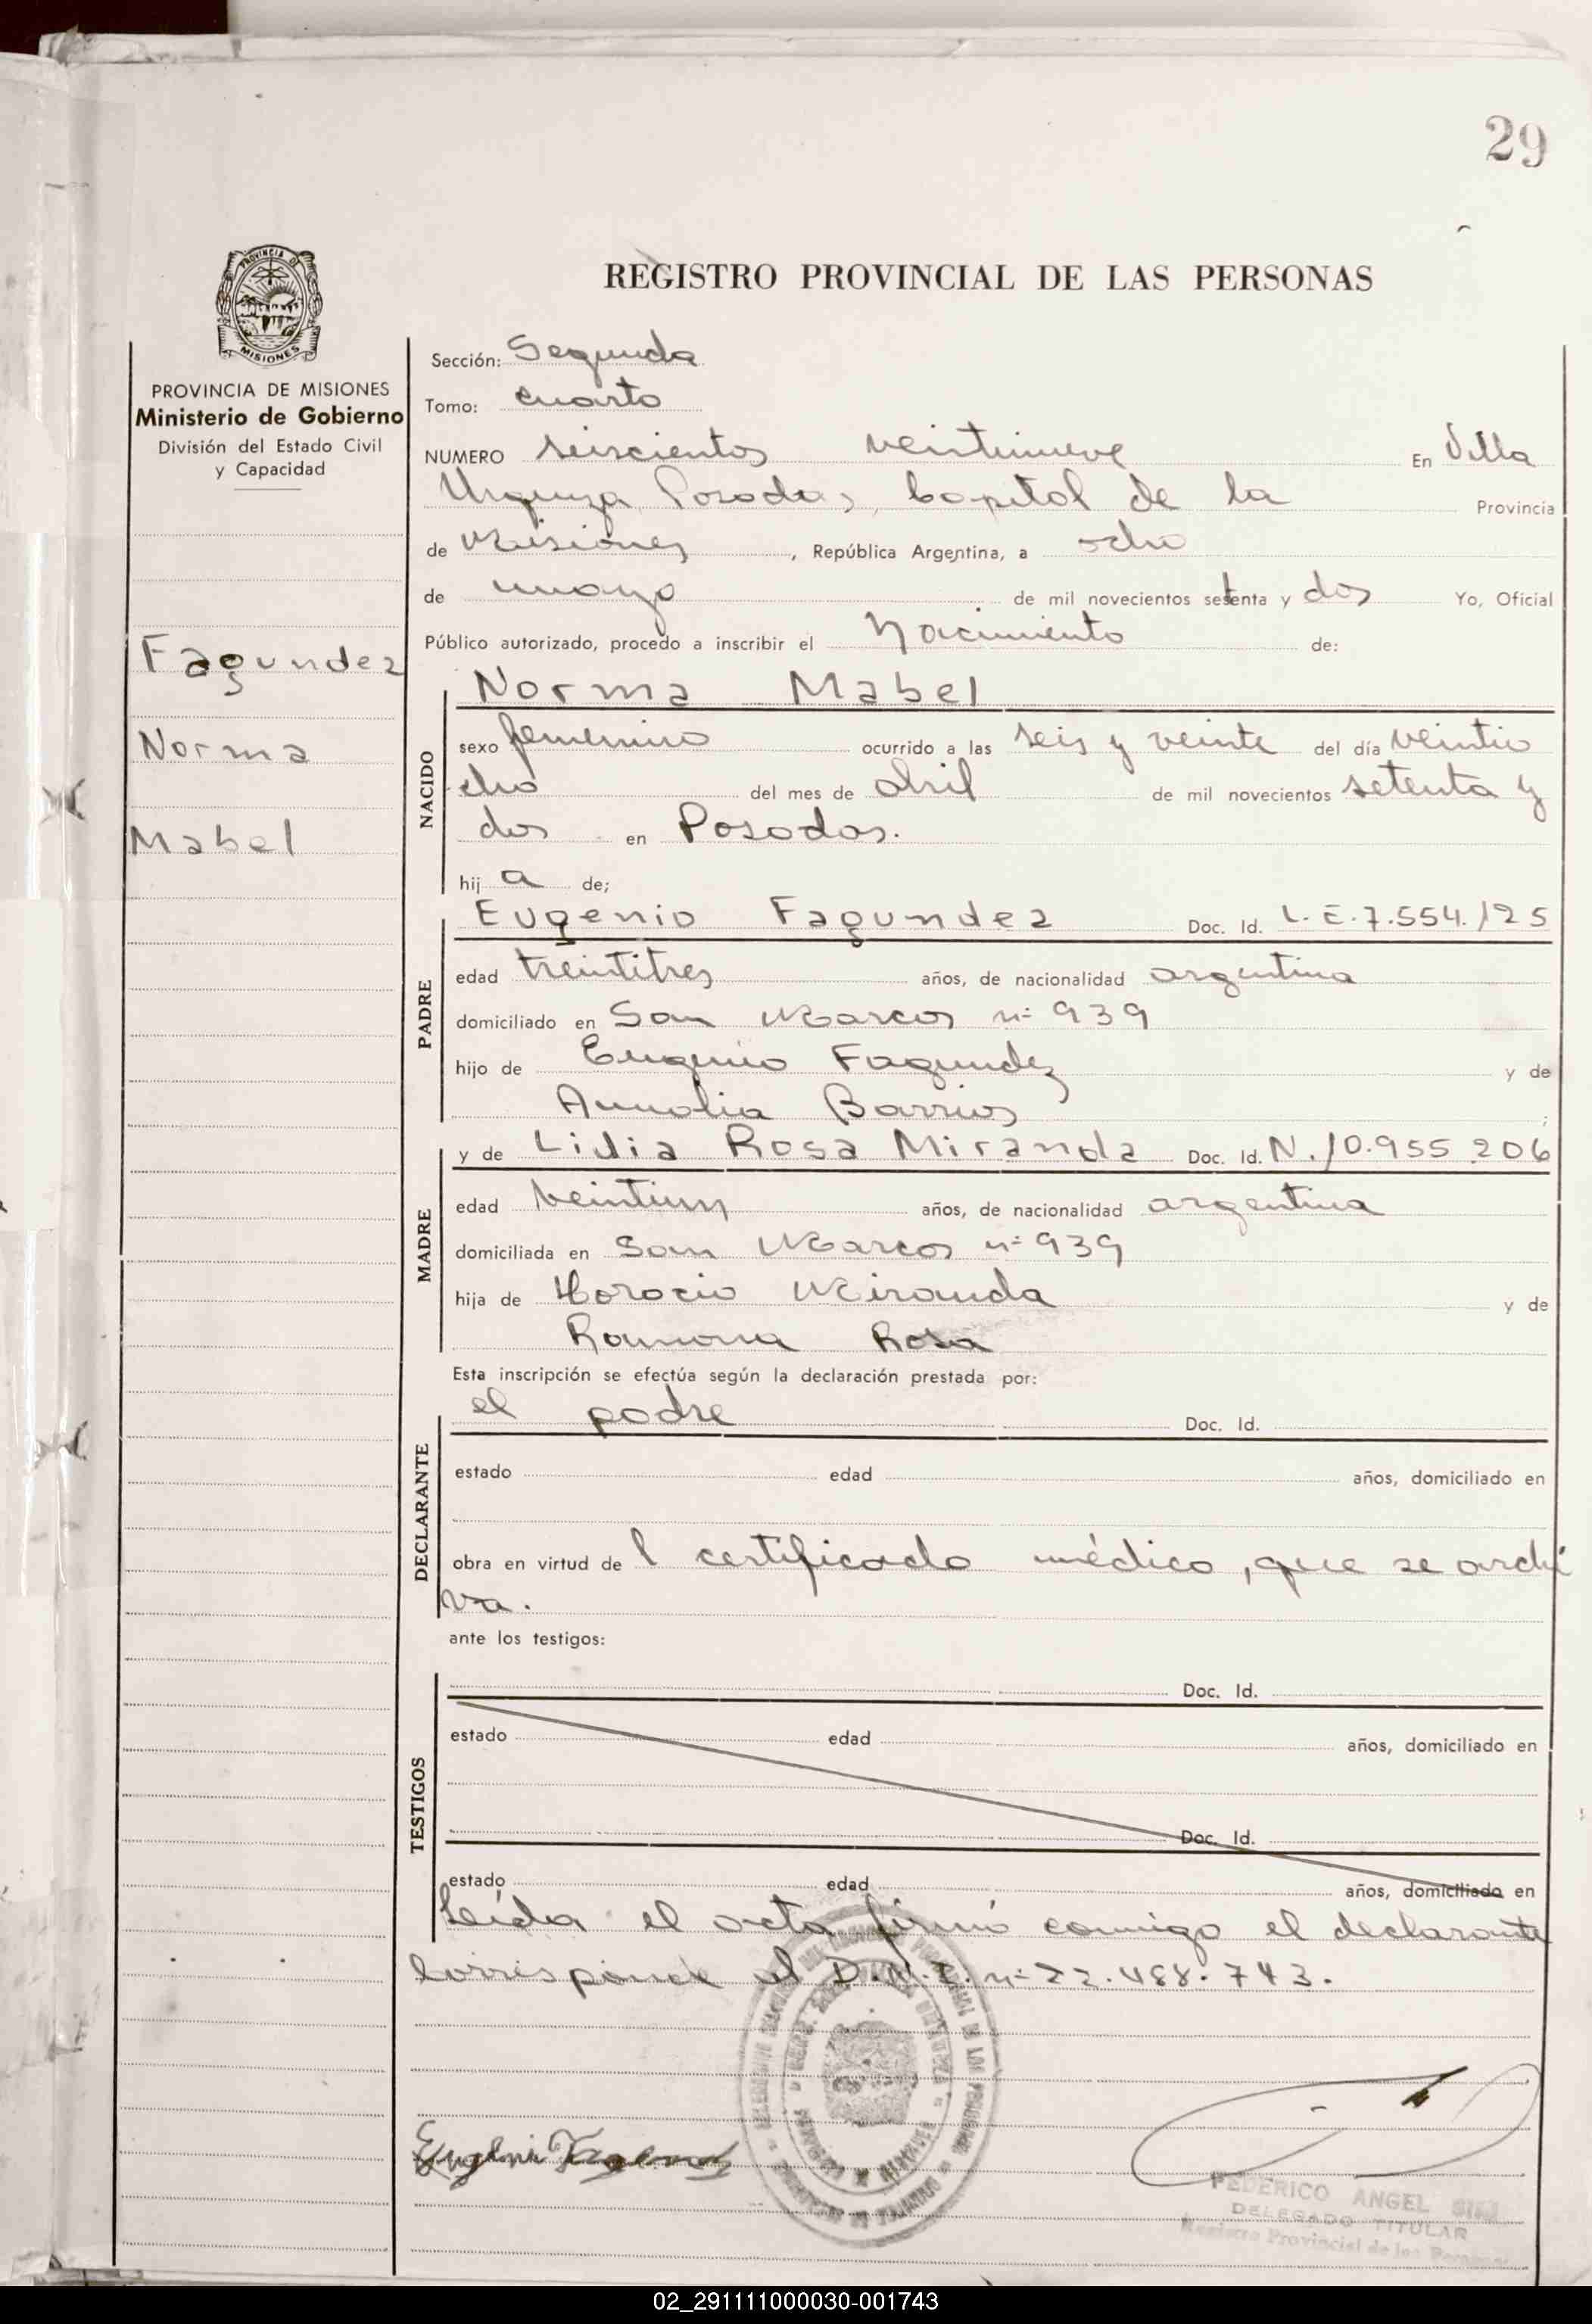 29
REGISTRO PROVINCIAL DE LAS PERSONAS
PROVINCIA DE
MISIONES
PROVINCIA DE MISIONES
Ministerio de Gobierno
División del Estado Civil
y Capacidad
Fagundez
Norma
Mabel
Sección: Segunda
Tomo: cuarto
NUMERO seiscientos veintinueve En Villa
Urquiza Posadas, Capital de la Provincia
de Misiones, República Argentina, a ocho
de mayo de mil novecientos setenta y dos Yo, Oficial
Público autorizado, procedo a inscribir el Nacimiento de:
NACIDO
Norma Mabel
sexo femenino ocurrido a las seis y veinte del día veintio
cho del mes de abril de mil novecientos setenta y
dos en Posadas.
hij a de;
PADRE
Eugenio Fagundez Doc. Id. L.E.7.554.125
edad treintitres años, de nacionalidad argentina
domiciliado en San Marcos nº 939
hijo de Eugenio Fagundez y de
Amalia Barrios ;
MADRE
y de Lidia Rosa Miranda Doc. Id. N.10.955.206
edad veintiun años, de nacionalidad argentina
domiciliada en San Marcos nº 939
hija de Horacio Miranda y de
Ramona Rosa
Esta inscripción se efectúa según la declaración prestada por:
DECLARANTE
el padre Doc. Id.
estado edad años, domiciliado en
obra en virtud de l certificado médico, que se archi
va.
ante los testigos:
TESTIGOS
Doc. Id.
estado edad años, domiciliado en
Doc. Id.
estado edad años, domiciliado en
Leída el acta firmó conmigo el declarante
Corresponde el D.N.I. nº 22.488.743.
FEDERICO ANGEL
DELEGADO TITULAR
Registro Provincial de las Personas
02_291111000030-001743